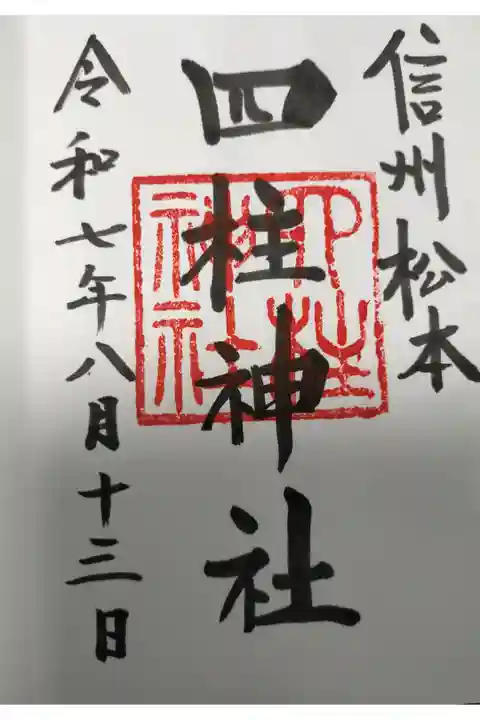 信州松本
四柱神社
令和七年八月十三日